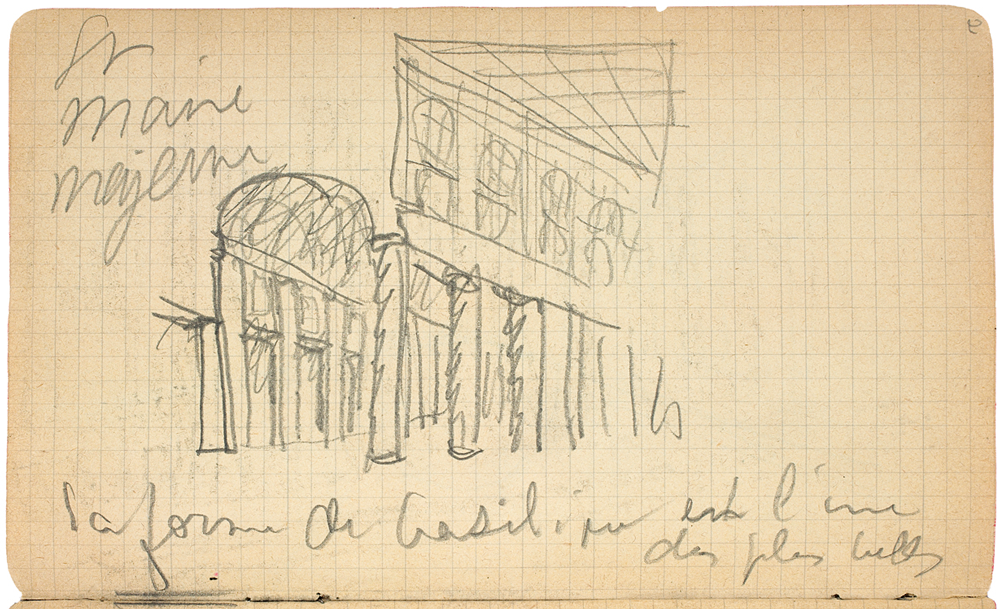 St
Marie
majeure
la forme de basilique est l'une
des plus belles
2